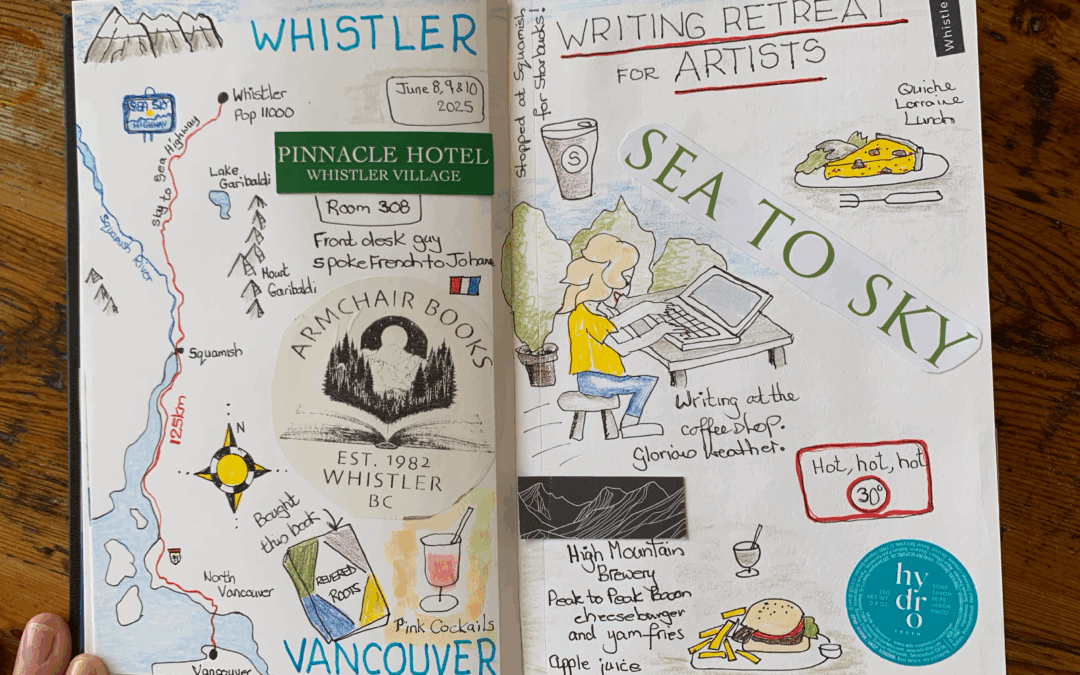 WHISTLER
SEA SKY
HIGHWAY
Whistler
Pop 11000
June 8, 9 & 10
2025
Sky to Sea Highway
PINNACLE HOTEL
WHISTLER VILLAGE
Lake
Garibaldi
Room 308
Squamish
River
Front desk guy
spoke French to Johane
Mount
Garibaldi
ARMCHAIR BOOKS
Squamish
125km
N
EST. 1982
WHISTLER
BC
Bought
this book
REVERED
ROOTS
North
Vancouver
Pink Cockails
VANCOUVER
Vancouver
Stopped at Squamish
for Starbucks!
WRITING RETREAT
FOR ARTISTS
Whistle
S
Quiche
Lorraine
Lunch
SEA TO SKY
Writing at the
coffee shop.
Glorious weather.
Hot, hot, hot
30°
High Mountain
Brewery
Peak to Peak Bacon
cheeseburger
and yam-fries
apple juice
hy
dro